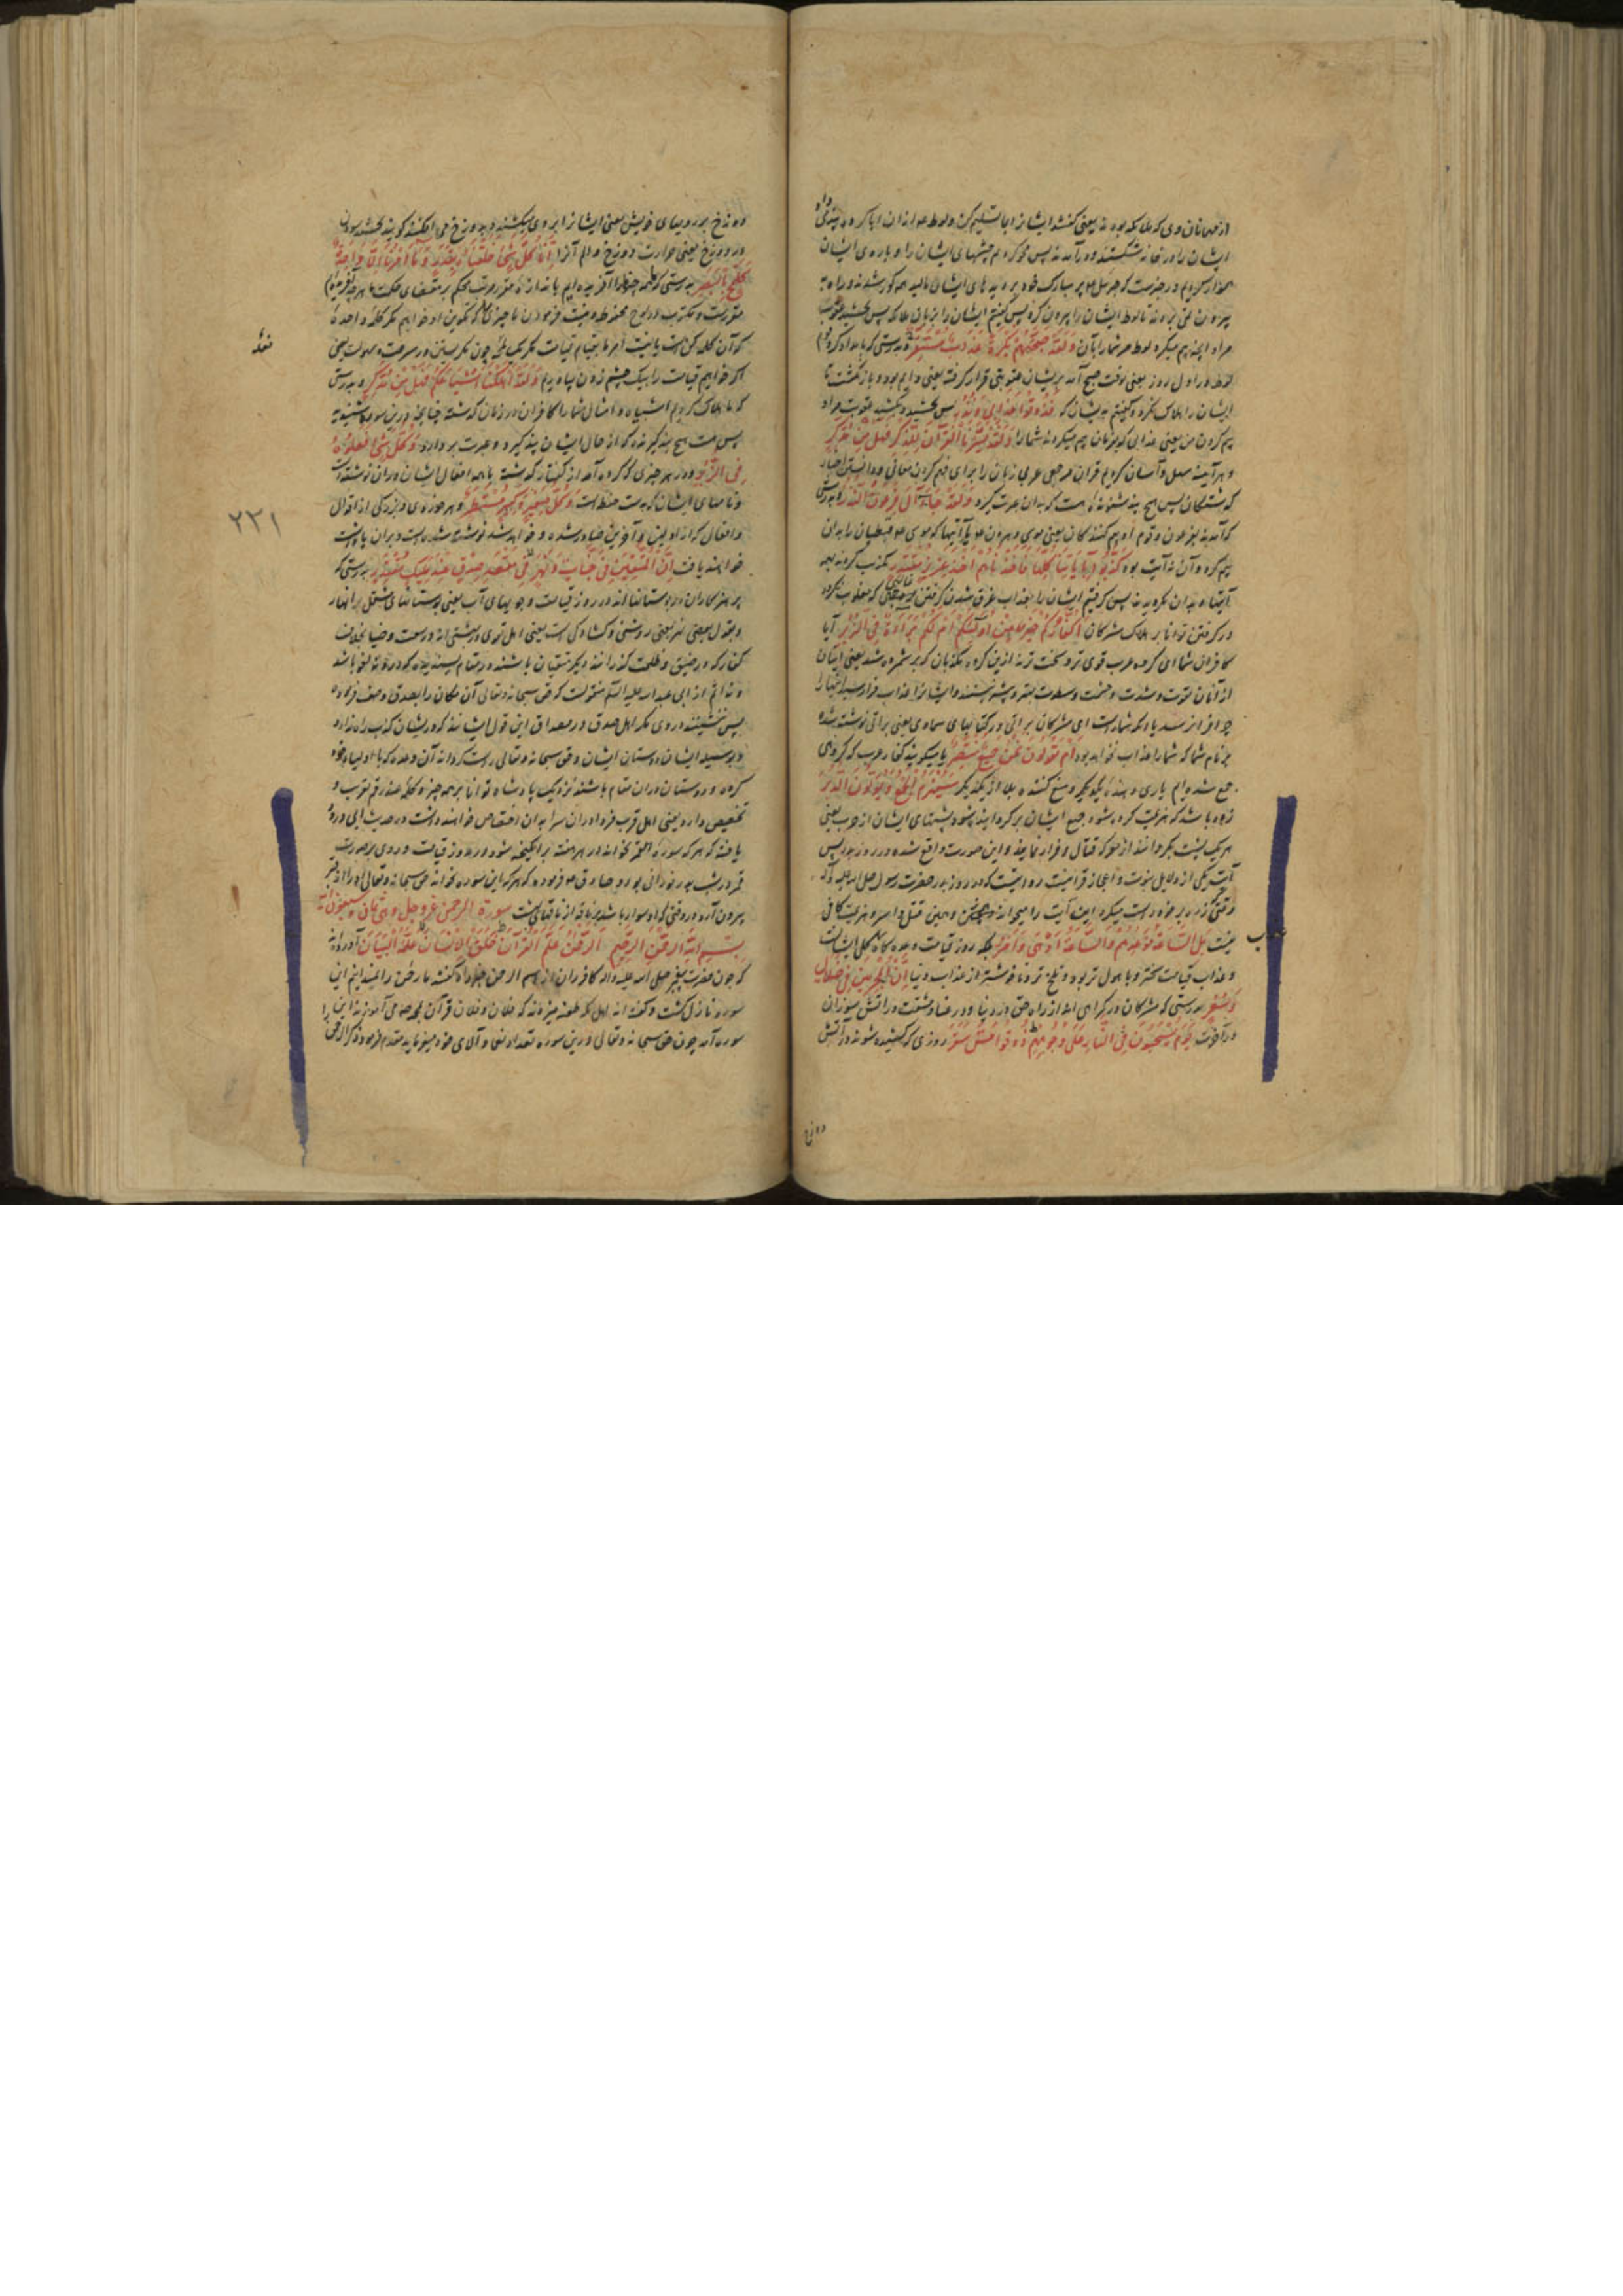 از مهمانان وی که ملایکه بودند یعنی گفتند ایشانرا بما تسلیم کن و لوط
ایشان را در خانه شکستند و در آمدند پس محو کردیم چشمهای ایشان را و با روی ایشان
هموار کردیم در خبرست که جبرئیل پر مبارک خود بر دیدهای ایشان مالید همه کور شدند و راه
بیرون لوط ایشان را بیرون کرد پس گفتیم ایشان را بزبان ملائکه پس بچشید عقوبت
مرا و آنچه بیم میکرد لوط مر شما را بآن وَلَقَدْ صَبَّحَهُمْ بُكْرَةً عَذَابٌ مُسْتَقِرٌّ و بدرستی که بامداد کرد
لوط در اول روز یعنی بوقت صبح آمد بریشان عقوبتی قرار گرفته یعنی دایم بود و باز نگشت تا
ایشان را هلاک نکرد و گفتیم بدیشان که فَذُوقُوا عَذَابِي وَنُذُرِ پس بچشید عقوبت مرا و
بیم کردن من یعنی عذابی که بدان بیم میکردند شما را وَلَقَدْ يَسَّرْنَا الْقُرْآنَ لِلذِّكْرِ فَهَلْ مِنْ مُدَّكِرٍ
و هر آینه سهل و آسان کردیم قرآن عربی زبان را برای فهم کردن معانی و دانستن اخبار
گذشتگان پس هیچ پند شنونده هست که بدان عبرت گیرد وَلَقَدْ جَاءَ آلَ فِرْعَوْنَ النُّذُرُ و بدرستی
که آمد بفرعون و قوم او بیم کنندگان یعنی موسی و هرون با آیتها که موسی قبطیان را بدان
بیم کرد و آن نه آیت بود كَذَّبُوا بِآيَاتِنَا كُلِّهَا فَأَخَذْنَاهُمْ أَخْذَ عَزِيزٍ مُقْتَدِرٍ تکذیب کردند بهمه
آیتها و بدان نگرویدند پس گرفتیم ایشان را بعذاب غرق شدن گرفتن غالبی که مغلوب نگردد
در گرفتن توانا بر هلاک مشرکان أَكُفَّارُكُمْ خَيْرٌ مِنْ أُولَئِكُمْ أَمْ لَكُمْ بَرَاءَةٌ فِي الزُّبُرِ آیا
کافران شما ای گروه عرب قوی تر و سخت ترند ازین گروه مکذبان که بر شمرده شد یعنی ایشان
از آنان بقوت و شدت و حشمت و سطوت بیشتر نیستند و ایشانرا عذاب فرا رسید شما را
چرا فرا نرسد یا مگر شما راست ای مشرکان براتی در کتابهای سماوی یعنی براتی نوشته شده
بر نام شما که شما را عذاب نخواهد بود أَمْ يَقُولُونَ نَحْنُ جَمِيعٌ مُنْتَصِرٌ یا میگویند کفار عرب که گروهی
جمع شده ایم یاری دهنده یکدیگر و منع کننده بلا از یکدیگر سَيُهْزَمُ الْجَمْعُ وَيُوَلُّونَ الدُّبُرَ
زود باشد که هزیمت کرده شود جمع ایشان و برگردانیده شود پشتهای ایشان از حرب یعنی
هر یک پشت بگردانند از معرکه قتال و فرار نمایند و این صورت واقع شده در روز بدر پس
آیت یکی از دلایل نبوت و اعجاز قرآنیست روایتست که در روز بدر حضرت رسول صلی الله علیه و آله
وقتیکه زره بر خود راست میکرد این آیت را میخواند و همین قتل و اسر و هزیمت کافی
نیست بَلِ السَّاعَةُ مَوْعِدُهُمْ وَالسَّاعَةُ أَدْهَى وَأَمَرُّ بلکه روز قیامت وعده گاه کل ایشانست
و عذاب قیامت سخت و با هول تر بود و تلخ تر و ناخوشتر از عذاب دنیا إِنَّ الْمُجْرِمِينَ فِي ضَلَالٍ
وَسُعُرٍ بدرستی که مشرکان در گمراهی اند از راه حق در دنیا و در عنا و مشقت در آتش سوزان
در آخرت يَوْمَ يُسْحَبُونَ فِي النَّارِ عَلَى وُجُوهِهِمْ ذُوقُوا مَسَّ سَقَرَ روزی که کشیده شوند در آتش
دوزخ
دوزخ بر رویهای خویش یعنی ایشانرا بروی میکشند و بدوزخ می افکنند گویند بچشید سودن
دوزخ یعنی حرارت دوزخ و الم آنرا إِنَّا كُلَّ شَيْءٍ خَلَقْنَاهُ بِقَدَرٍ وَمَا أَمْرُنَا إِلَّا وَاحِدَةٌ
كَلَمْحٍ بِالْبَصَرِ بدرستی که ما همه چیزها را آفریده ایم باندازه مقرر مرتب بحکم بر مقتضای حکمت
مقررست و مکتوب در لوح محفوظ و نیست فرمودن ما چیزی را که تکوین او خواهیم مگر کلمه واحده
که آن کلمه کن است یا نیست امر ما بقیام قیامت مگر یک چون نگریستن در سرعت و سهولت یعنی
اگر خواهیم قیامت را بیک چشم زدن بپا داریم وَلَقَدْ أَهْلَكْنَا أَشْيَاعَكُمْ فَهَلْ مِنْ مُدَّكِرٍ و بدرستی
که ما هلاک کردیم اشباه و امثال شما را کافران در زمان گذشته چنانچه درین سوره شنیدید
پس هست هیچ پند گیرنده که از حال ایشان پند گیرد و عبرت بردارد وَكُلُّ شَيْءٍ فَعَلُوهُ
فِي الزُّبُرِ و هر چیزی که کرده اند از کفار گذشته با همه افعال ایشان در آن نوشته است
و نامهای ایشان که بدست حفظه است وَكُلُّ صَغِيرٍ وَكَبِيرٍ مُسْتَطَرٌ و هر خوردی و بزرگی از اقوال
و افعال که از اولین و آخرین صادر شده و خواهد شد نوشته شده است و بر آن پاداشت
خواهند یافت إِنَّ الْمُتَّقِينَ فِي جَنَّاتٍ وَنَهَرٍ فِي مَقْعَدِ صِدْقٍ عِنْدَ مَلِيكٍ مُقْتَدِرٍ بدرستی که
پرهیزکاران در بوستانها اند در روز قیامت و جویهای آب یعنی بوستانهای مشتمل بر انهار
و بقول بعضی نهر یعنی روشنی و گشادگی است یعنی اهل تقوی در بهشتی اند در سعت و ضیا بخلاف
کفار که در ضیق و ظلمت گذرانند و دیگر متقیان باشند در مقام پسندیده که درو نه لغو باشد
و نه اثم از ابی عبد الله علیه السلم منقولست که حق سبحانه و تعالی آن مکان را بصدق وصف فرموده
پس ننشینند در وی مگر اهل صدق و مصداق این قول ایشانند
دوستان ایشان و حق سبحانه و تعالی راست گرداند آن وعده که با اولیاء خود
کرده و دوستان در آن مقام باشند نزدیک پادشاه توانا بر همه چیز و کلمه عند رقم تقرب و
تخصیص دارد یعنی اهل قرب فردا در آن سرا بدان اختصاص خواهند داشت در حدیث ابی درود
یافته که هر که سوره القمر بخواند در هر هفته برانگیخته شود در روز قیامت و روی بر صورت
قمر در شب بدر نورانی بود و صادق فرموده که هر که این سوره بخواند حق سبحانه و تعالی او را از قبر
بیرون آرد در وقتی که او سوار باشد بر ناقه از ناقهای بهشت سورة الرحمن عز و جل وهی ثمان و سبعون آیة
بِسْمِ اللَّهِ الرَّحْمَنِ الرَّحِيمِ الرَّحْمَنُ عَلَّمَ الْقُرْآنَ خَلَقَ الْإِنْسَانَ عَلَّمَهُ الْبَيَانَ آورده اند
که چون حضرت پیغمبر صلی الله علیه و اله کافران از اسم الرحمن گفتند ما رحمن را نمیدانیم این
سوره نازل گشت و گفته اند اهل مکه طعنه میزدند که فلان و فلان قرآن بمحمد می آموزند این
سوره آمد چون حق سبحانه و تعالی درین سوره تعداد نعما و آلای خود مینماید مقدم فرمود ذکر الرحمن
۲۳۱